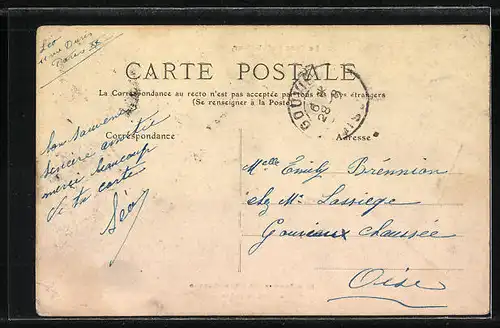 Léo
Paris
CARTE POSTALE
La Correspondance au recto n'est pas acceptée par tous les pays étrangers
(Se renseigner à la Poste)
Correspondance
Adresse
Bon Souvenir
Sincère amitié
merci beaucoup
de ta carte
Léo
Melle Emily Brénnion
chez Mr Lassiege
Gouvieux Chaussée
Oise